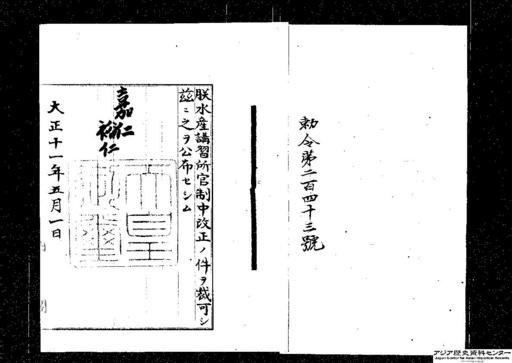 勅令第二百四十三號
朕水産講習所官制中改正ノ件ヲ裁可シ
茲ニ之ヲ公布セシム
嘉仁
裕仁
大正十一年五月一日
アジア歴史資料センター
Japan Center for Asian Historical Records